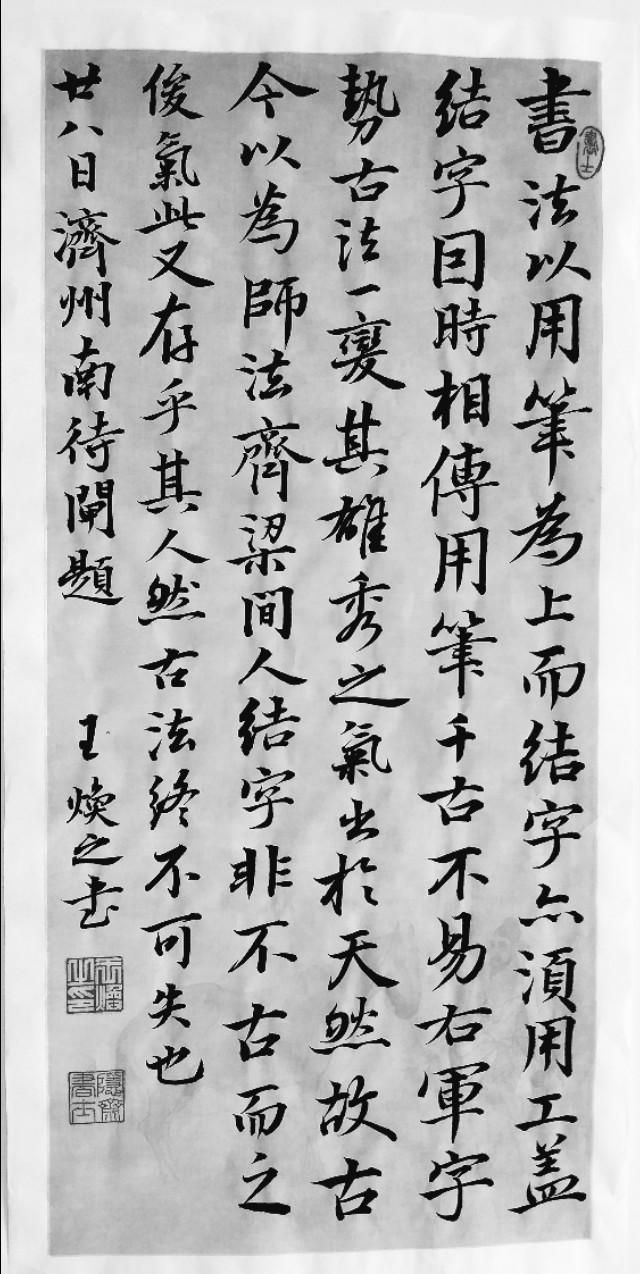 書法以用筆為上而結字亦湏用工盖
結字囙時相傳用筆千古不易右軍字
勢古法一變其雄秀之氣出於天然故古
今以為師法齊梁間人結字非不古而之
俊氣此又存乎其人然古法終不可失也
廿八日濟州南待閘題
王煥之書
王煥之印